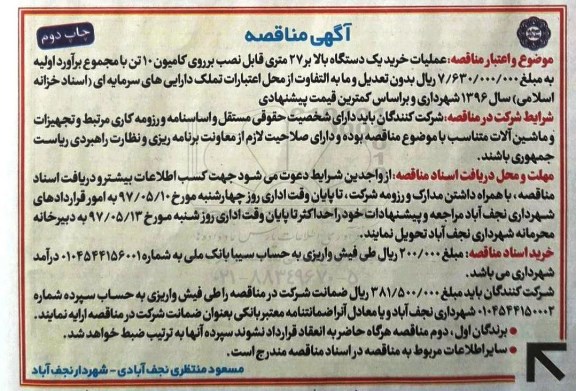 آگهی مناقصه
چاپ دوم
موضوع و اعتبار مناقصه: عملیات خرید یک دستگاه بالا بر ۲۷ متری قابل نصب بر روی کامیون ۱۰ تن با مجموع برآورد اولیه
به مبلغ ۷/۶۳۰/۰۰۰/۰۰۰ ریال بدون تعدیل و ما به التفاوت از محل اعتبارات تملک دارایی های سرمایه ای (اسناد خزانه
اسلامی) سال ۱۳۹۶ شهرداری و براساس کمترین قیمت پیشنهادی
شرایط شرکت در مناقصه: شرکت کنندگان باید دارای شخصیت حقوقی مستقل و اساسنامه و رزومه کاری مرتبط و تجهیزات
و ماشین آلات متناسب با موضوع مناقصه بوده و دارای صلاحیت لازم از معاونت برنامه ریزی و نظارت راهبردی ریاست
جمهوری باشند.
مهلت و محل دریافت اسناد مناقصه: از واجدین شرایط دعوت می شود جهت کسب اطلاعات بیشتر و دریافت اسناد
مناقصه، با همراه داشتن مدارک و رزومه شرکت، تا پایان وقت اداری روز چهارشنبه مورخ ۹۷/۰۵/۱۰ به امور قراردادهای
شهرداری نجف آباد مراجعه و پیشنهادات خود را حداکثر تا پایان وقت اداری روز شنبه مورخ ۹۷/۰۵/۱۳ به دبیرخانه
محرمانه شهرداری نجف آباد تحویل نمایند.
خرید اسناد مناقصه: مبلغ ۲۰۰/۰۰۰ ریال طی فیش واریزی به حساب سیبا بانک ملی به شماره ۰۱۰۴۵۴۴۱۵۶۰۰۱ درآمد
شهرداری می باشد.
شرکت کنندگان باید مبلغ ۳۸۱/۵۰۰/۰۰۰ ریال ضمانت شرکت در مناقصه را طی فیش واریزی به حساب سپرده شماره
۰۱۰۴۵۴۴۱۵۰۰۰۲ شهرداری نجف آباد و یا معادل آنرا ضمانتنامه معتبر بانکی بعنوان ضمانت شرکت در مناقصه ارایه نمایند.
● برندگان اول، دوم مناقصه هرگاه حاضر به انعقاد قرارداد نشوند سپرده آنها به ترتیب ضبط خواهد شد.
● سایر اطلاعات مربوط به مناقصه در اسناد مناقصه مندرج است.
مسعود منتظری نجف آبادی - شهردار نجف آباد
۰۲۱-۸۸۳۴۹۶۷۰-۵